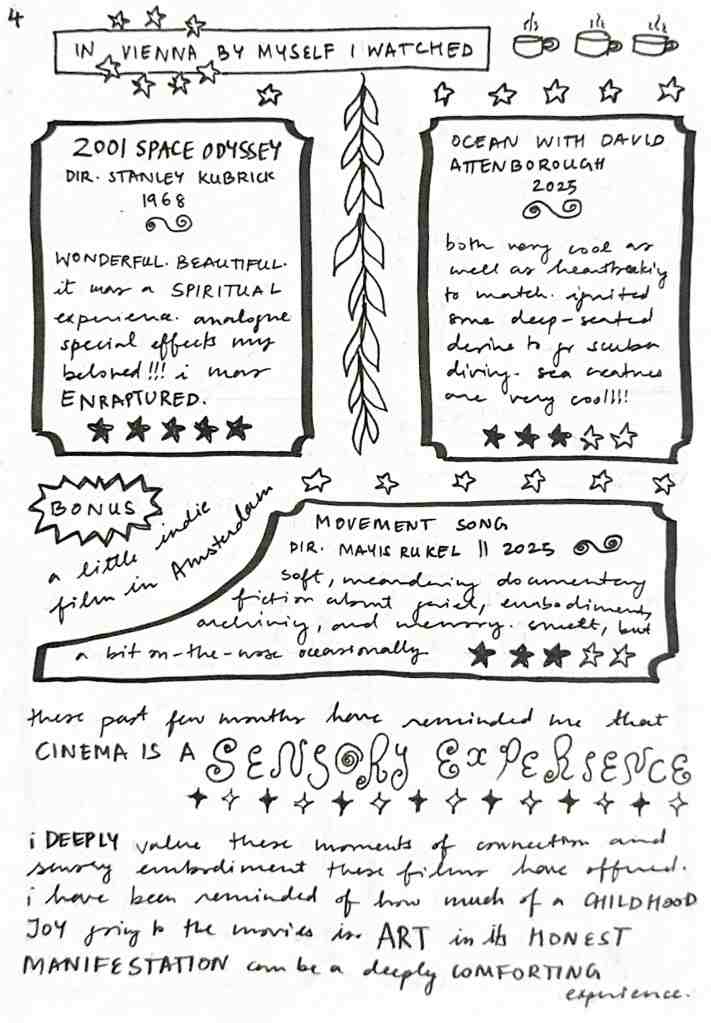 4
IN VIENNA BY MYSELF I WATCHED
2001 SPACE ODYSSEY
DIR. STANLEY KUBRICK
1968
WONDERFUL. BEAUTIFUL.
it was a SPIRITUAL
experience. analogue
special effects my
beloved!!! i was
ENRAPTURED.
OCEAN WITH DAVID
ATTENBOROUGH
2025
both very cool as
well as heartbreaking
to watch. ignited
some deep-seated
desire to go scuba
diving. sea creatures
are very cool!!!
BONUS
a little indie
film in Amsterdam
MOVEMENT SONG
DIR. MAYIS RUKEL || 2025
soft, meandering documentary
fiction about grief, embodiment,
archiving, and memory. but
a bit on-the-nose occasionally
these past few months have reminded me that
CINEMA IS A SENSORY EXPERIENCE
i DEEPLY value these moments of connection and
sensory embodiment these films have offered.
i have been reminded of how much of a CHILDHOOD
JOY going to the movies is. ART in its HONEST
MANIFESTATION can be a deeply COMFORTING
experience.